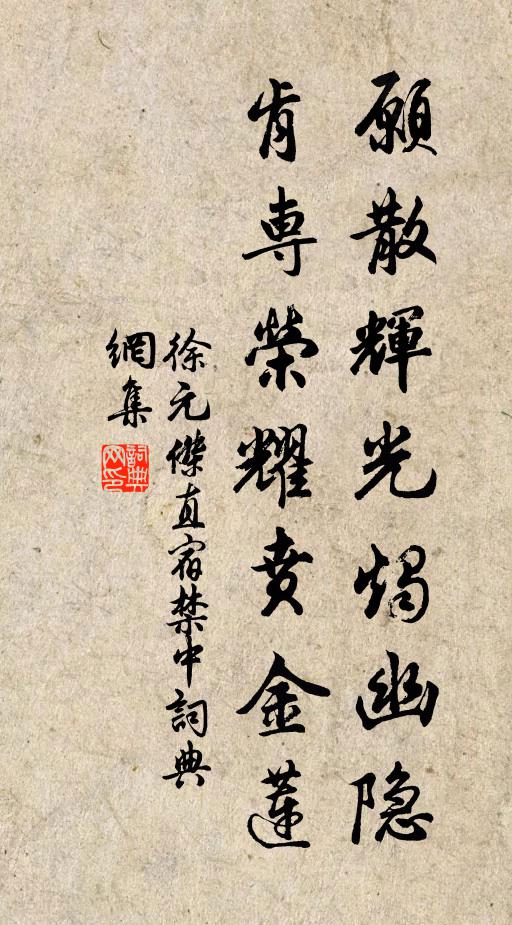 願散輝光燭幽隐
肯専榮耀賁金蓮
徐元傑直宿禁中詞典
網集
詞典网印